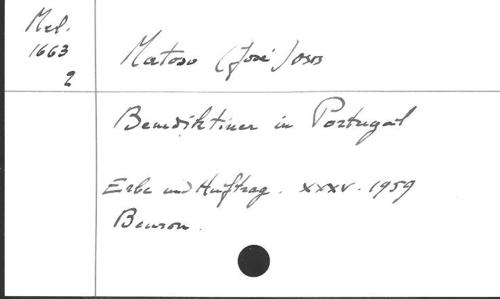 Mel.
1663
2
Matoso (José) OSB
Benediktiner in Portugal
Erbe und Auftrag. XXXV. 1959
Beuron.